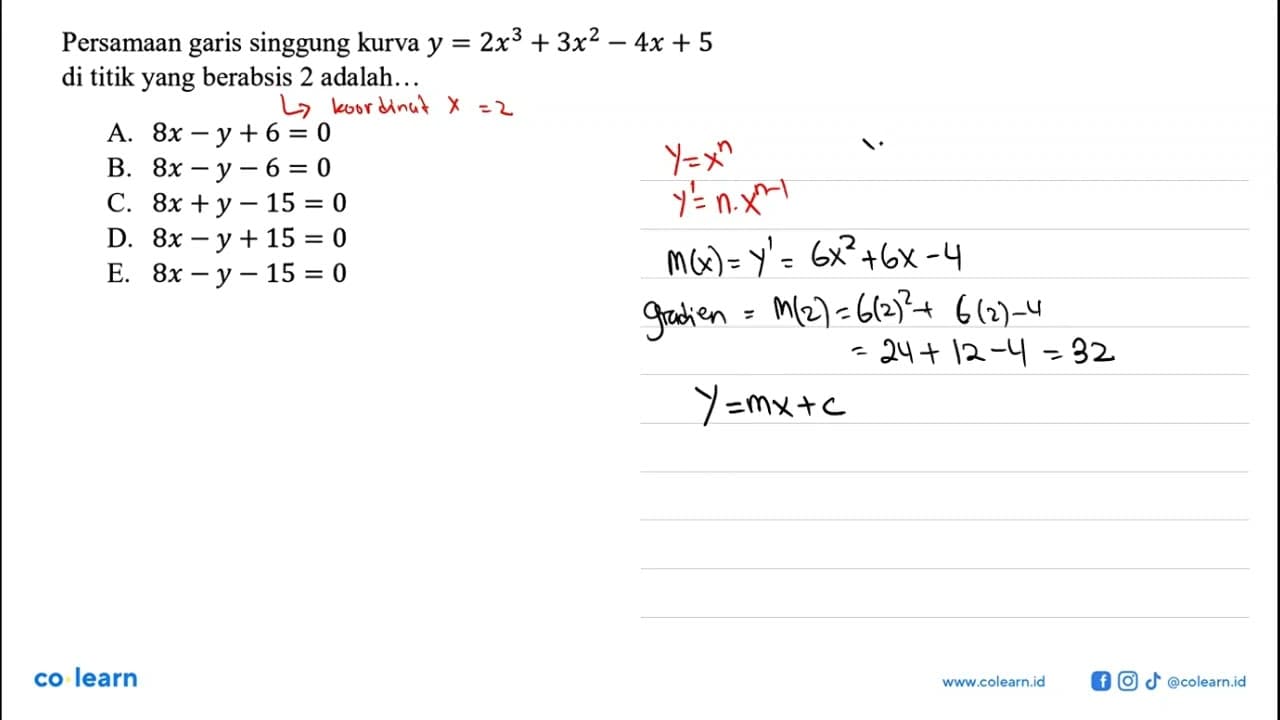 Persamaan garis singgung kurva y = 2x³ + 3x² − 4x + 5
di titik yang berabsis 2 adalah...
↳ koordinat x = 2
A. 8x − y + 6 = 0
B. 8x − y − 6 = 0
C. 8x + y − 15 = 0
D. 8x − y + 15 = 0
E. 8x − y − 15 = 0
y = xⁿ
y' = n.xⁿ⁻¹
m(x) = y' = 6x² + 6x − 4
gradien = m(2) = 6(2)² + 6(2) − 4
= 24 + 12 − 4 = 32
y = mx + c
co learn
www.colearn.id
@colearn.id